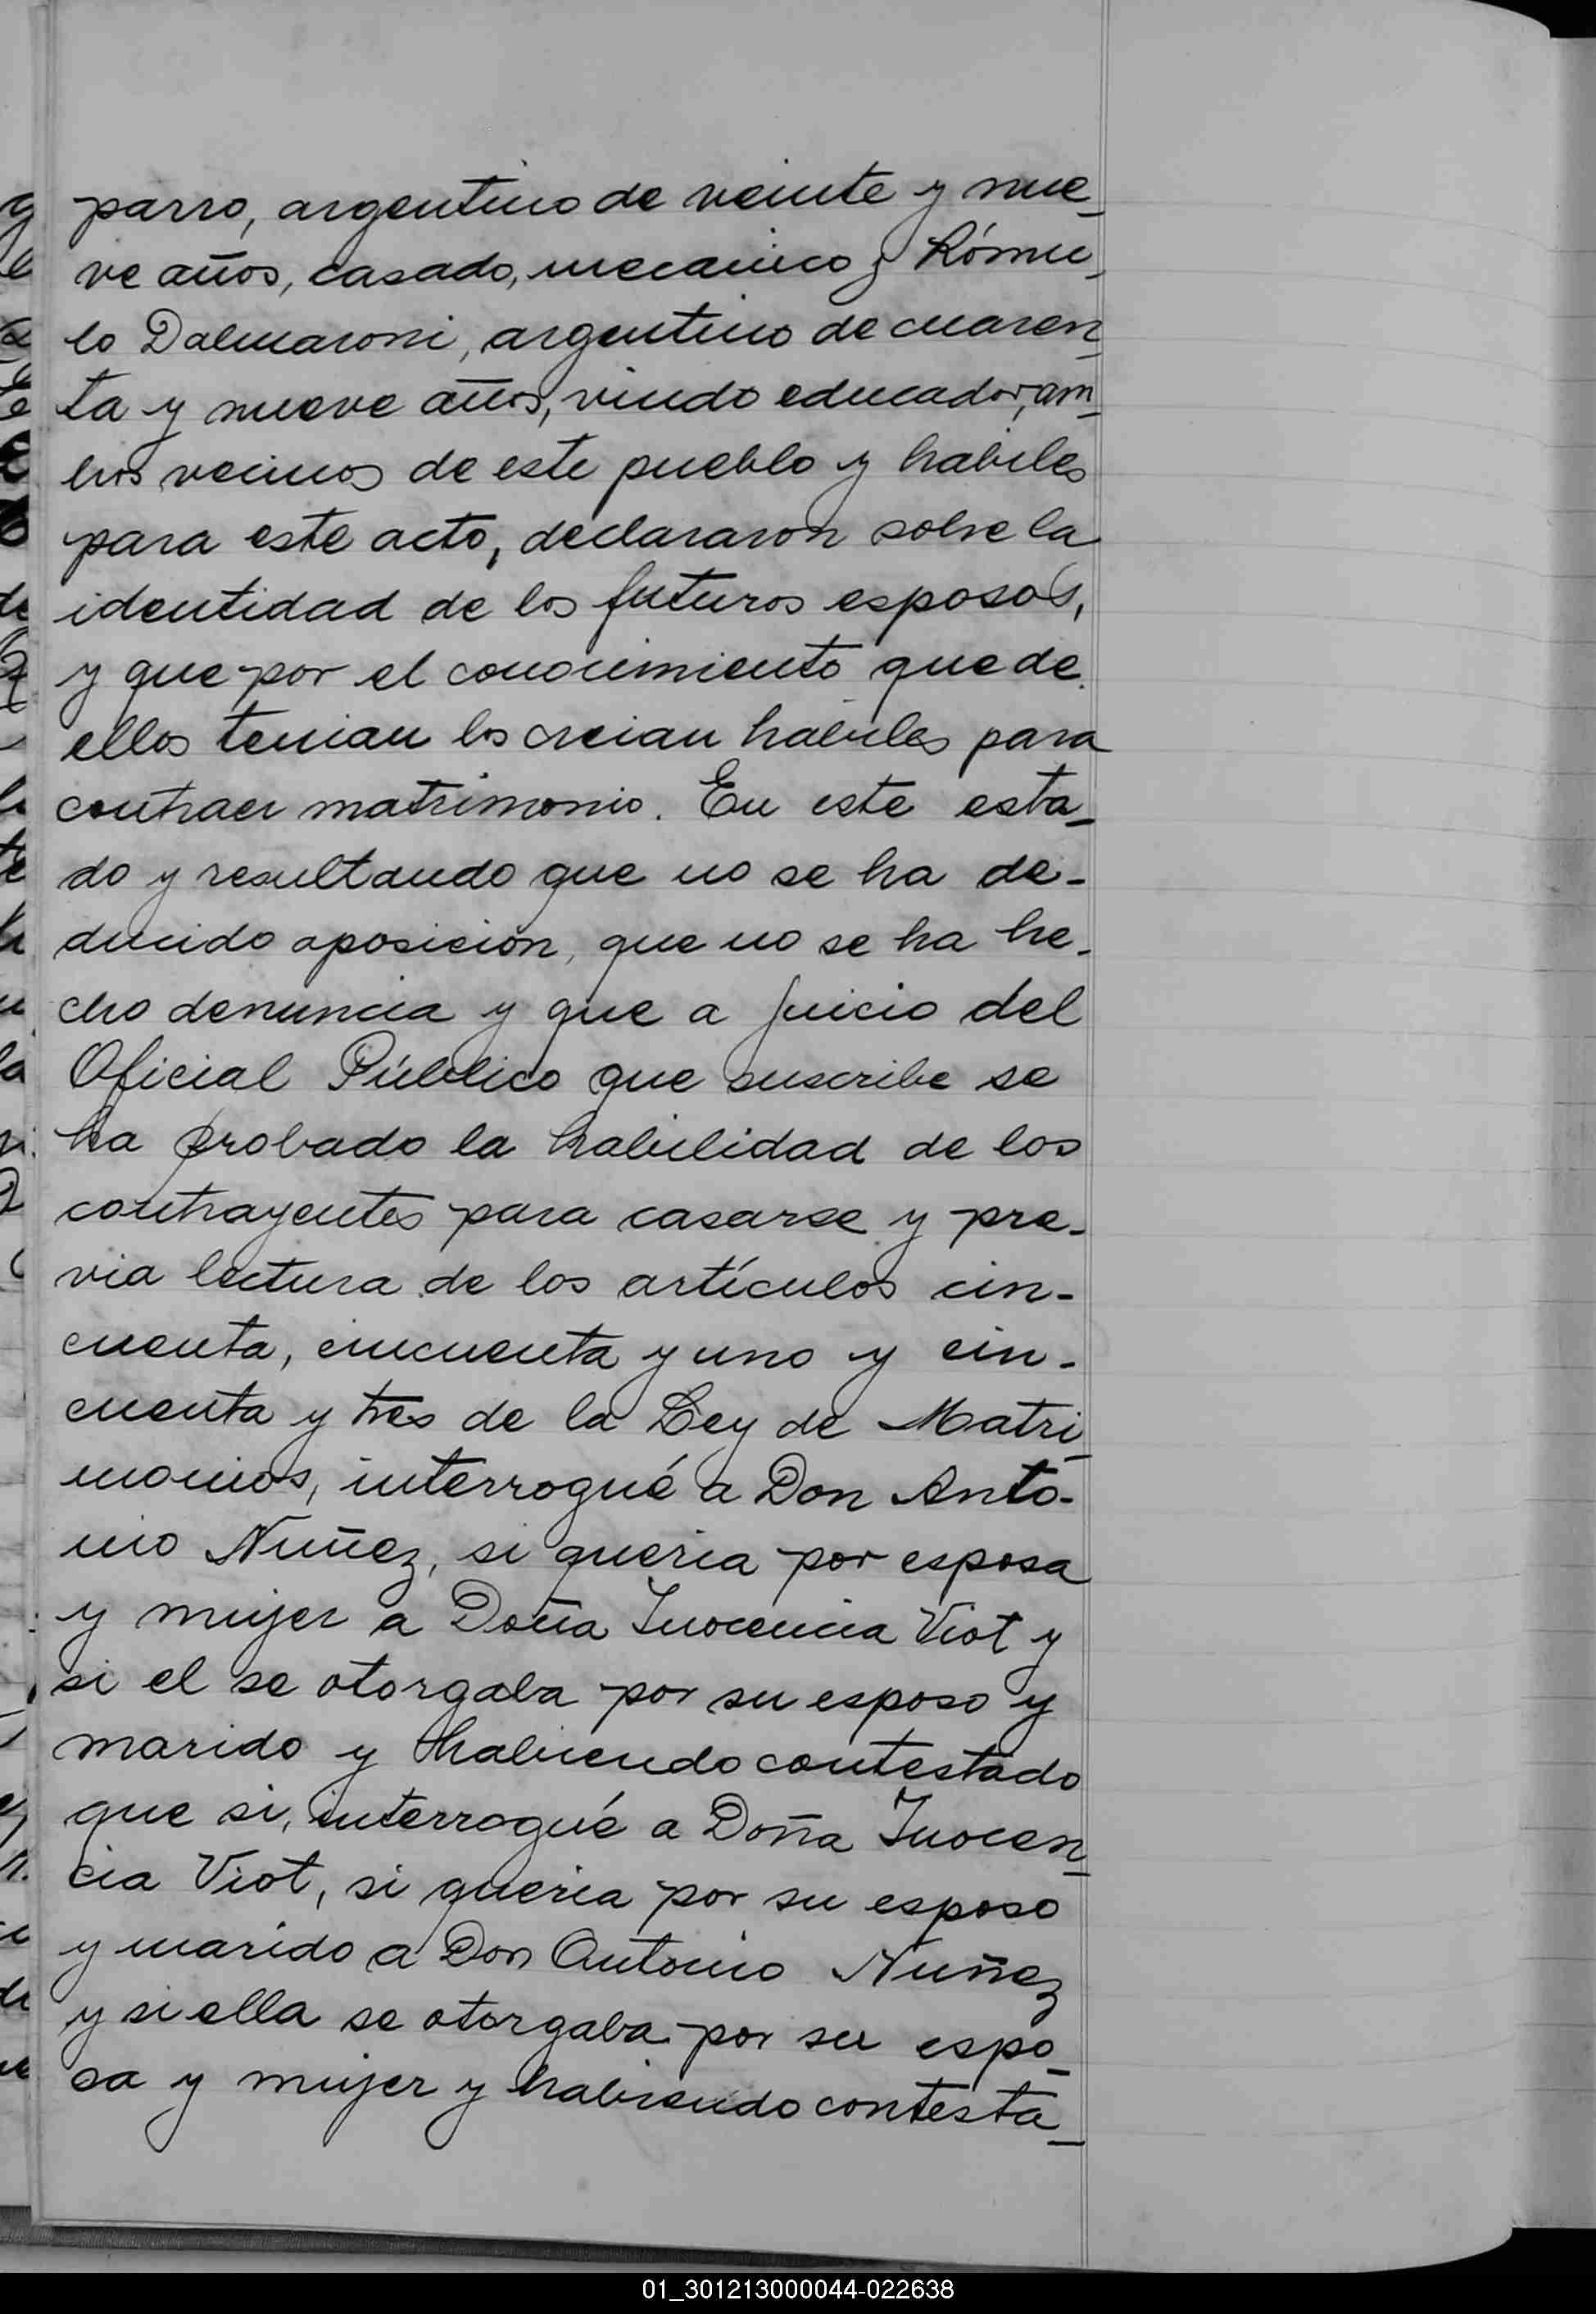 parro, argentino de veinte y nue_
ve años, casado, mecanico y Rómu_
lo Dalmaroni, argentino de cuaren_
ta y nueve años, viudo educador, am_
bos vecinos de este pueblo y habiles
para este acto, declararon sobre la
identidad de los futuros esposos,
y que por el conocimiento que de
ellos tenian los creian habiles para
contraer matrimonio. En este esta_
do y resultando que no se ha de-
ducido oposición, que no se ha he-
cho denuncia y que a juicio del
Oficial Público que suscribe se
ha probado la habilidad de los
contrayentes para casarse y pre-
via lectura de los artículos cin-
cuenta, cincuenta y uno y cin-
cuenta y tres de la Ley de Matri_
monios, interrogué a Don Anto-
nio Nuñez, si queria por esposa
y mujer a Doña Inocencia Viot y
si el se otorgaba por su esposo y
marido y habiendo contestado
que si, interrogué a Doña Inocen_
cia Viot, si queria por su esposo
y marido a Don Antonio Nuñez
y si ella se otorgaba por su espo_
sa y mujer y habiendo contesta_
01_301213000044-022638